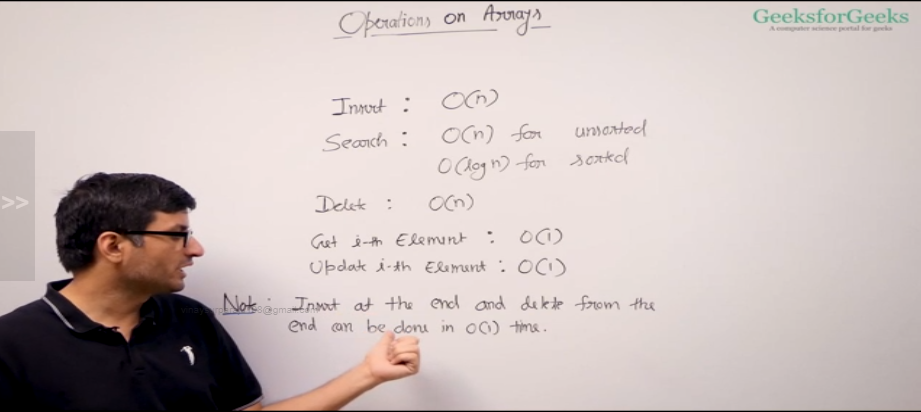 Operations on Arrays
GeeksforGeeks
A computer science portal for geeks
Insert : O(n)
Search : O(n) for unsorted
O(log n) for sorted
Delete : O(n)
Get i-th Element : O(1)
Update i-th Element : O(1)
Note : Insert at the end and delete from the
end can be done in O(1) time.
>>